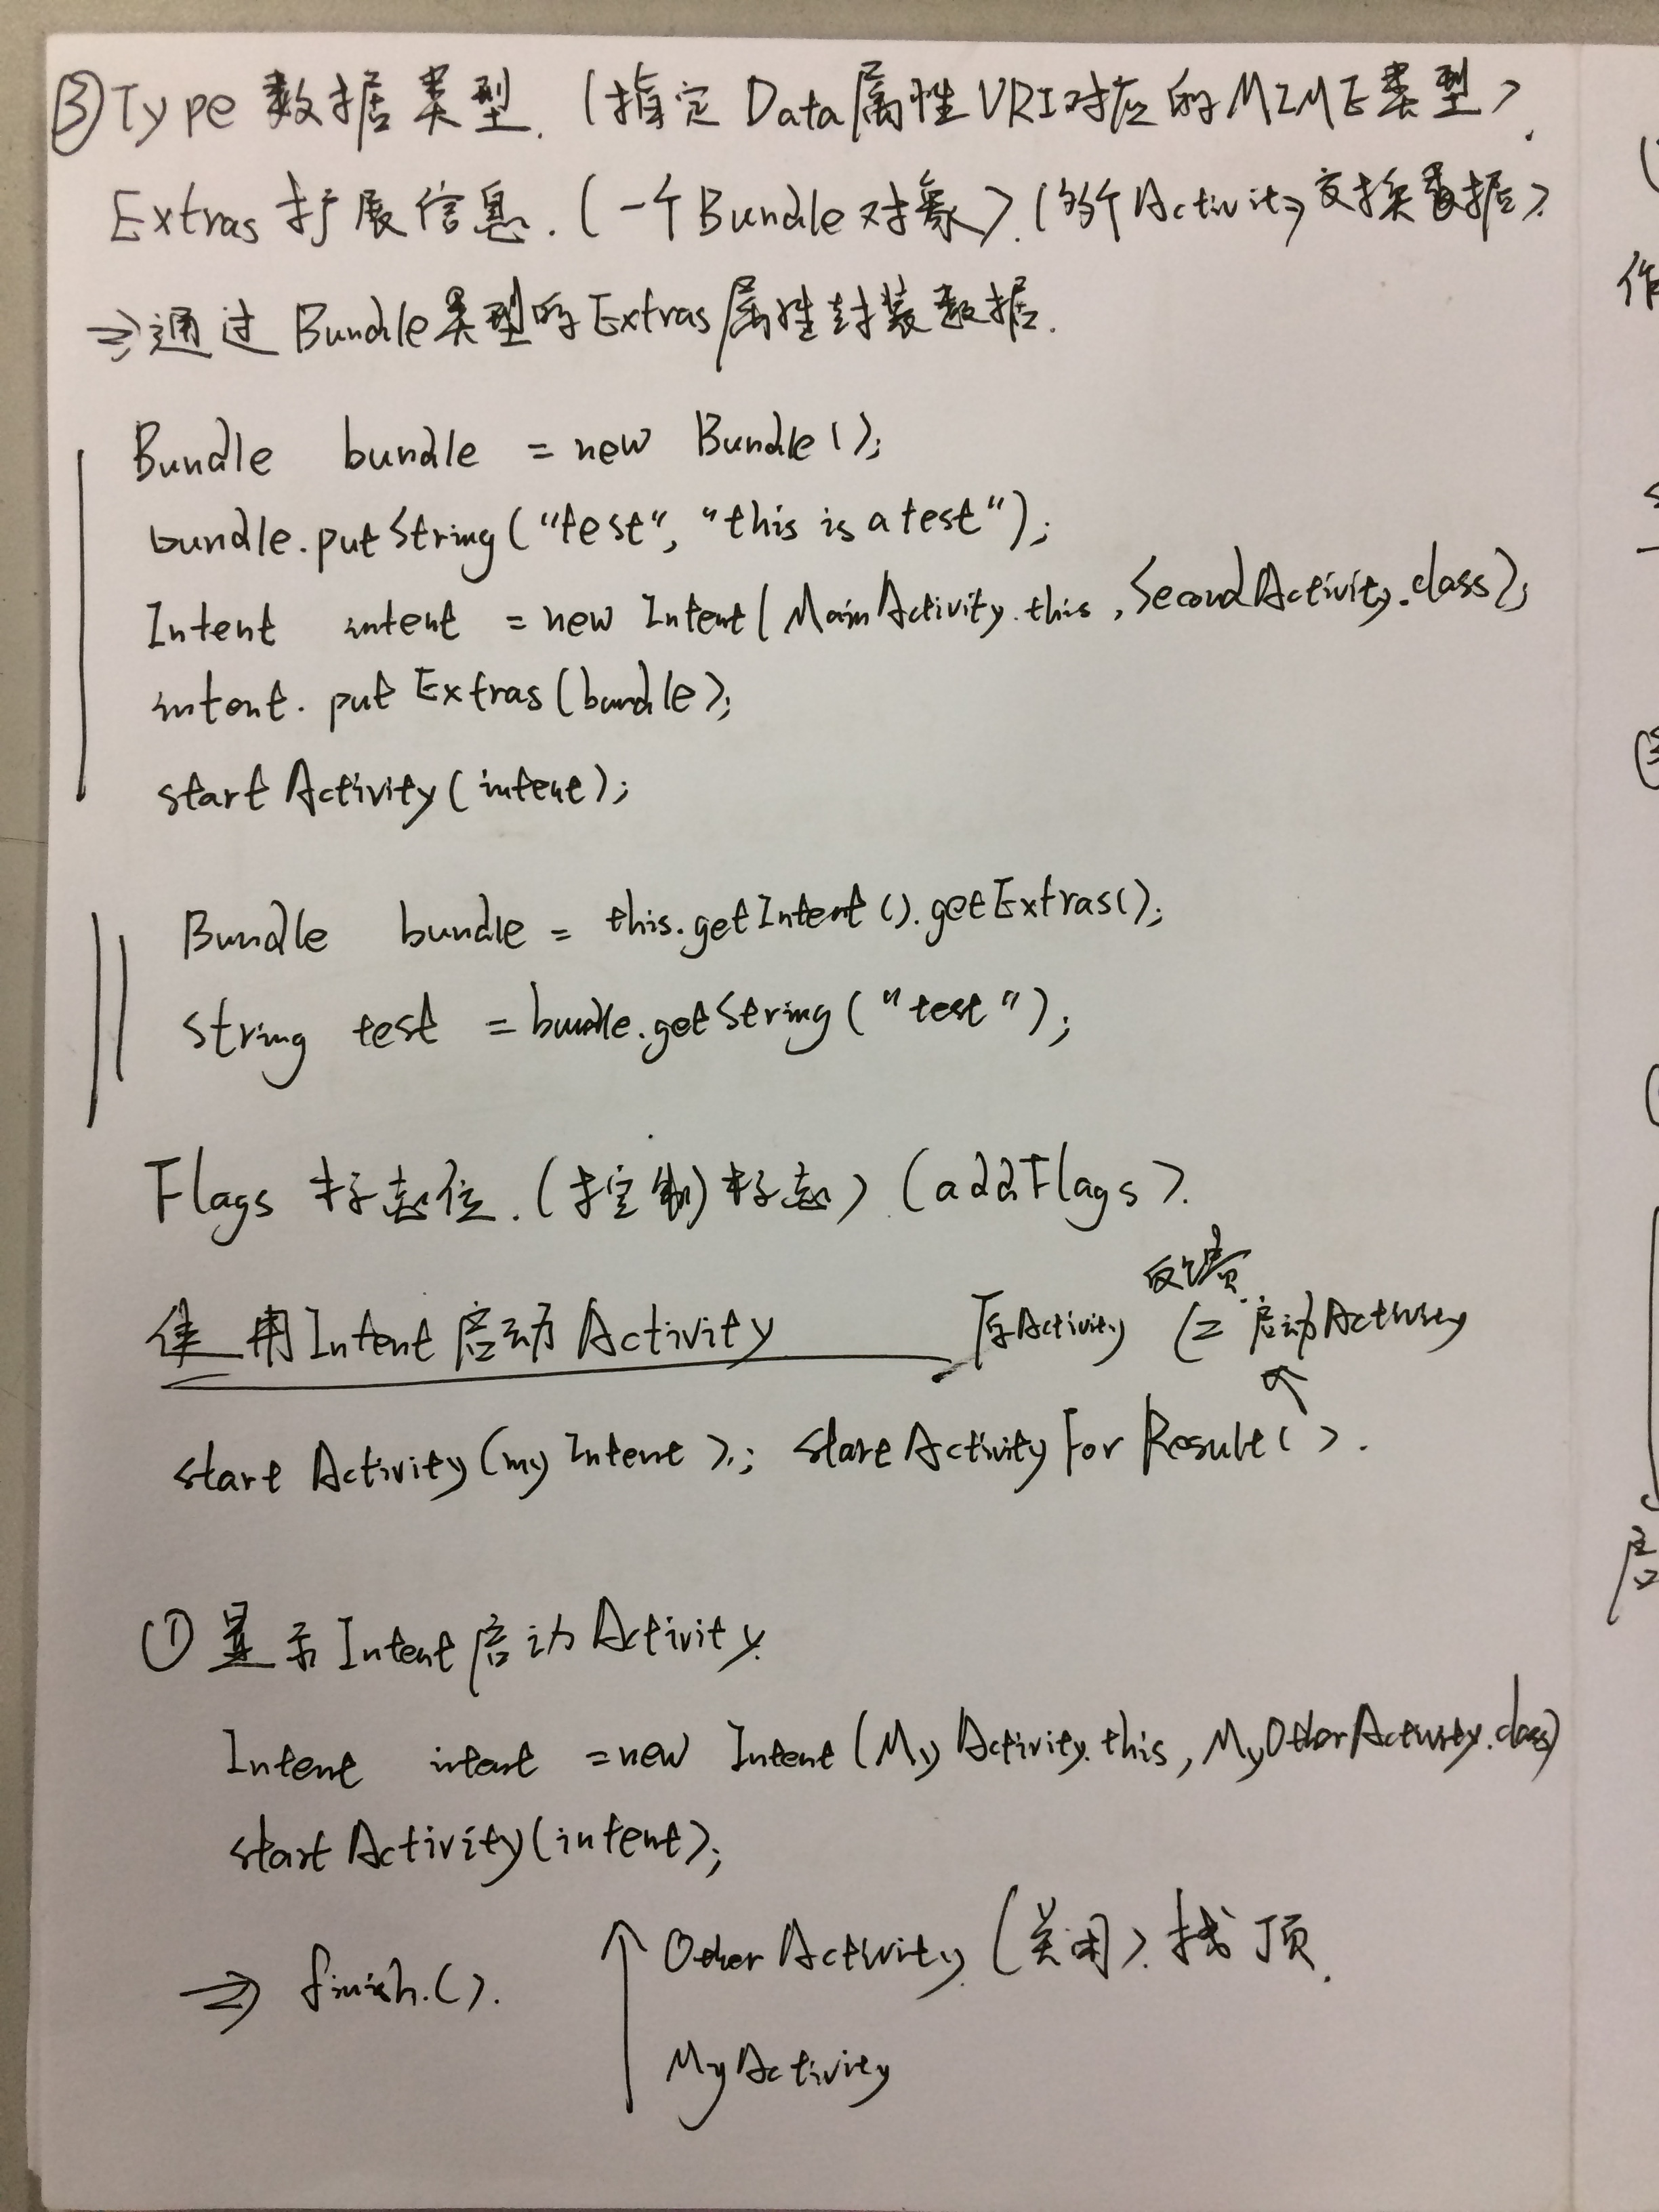 ③Type 数据类型.(指定Data属性URI对应的MIME类型).
Extras 扩展信息.(一个Bundle对象).(多个Activity交换数据).
⇒通过Bundle类型的Extras属性封装数据.
Bundle bundle = new Bundle();
bundle.putString("test", "this is a test");
Intent intent = new Intent(MainActivity.this, SecondActivity.class);
intent.putExtras(bundle);
startActivity(intent);
Bundle bundle = this.getIntent().getExtras();
String test = bundle.getString("test");
Flags 标志位.(控制)标志)(addFlags).
反馈
使用Intent启动Activity 原Activity ⇐ 启动Activity
startActivity(myIntent); startActivityForResult().
①显示Intent启动Activity.
Intent intent = new Intent(MyActivity.this, MyOtherActivity.class)
startActivity(intent);
⇒ finish.(). ↑ OtherActivity (关闭) 栈顶.
MyActivity